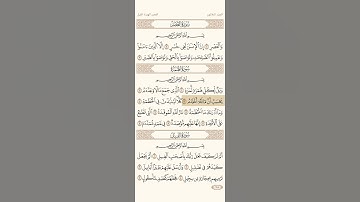 الجزء الثلاثون
سُورَةُ العَصْرِ
بِسْمِ اللَّهِ الرَّحْمَٰنِ الرَّحِيمِ
وَالْعَصْرِ ١ إِنَّ الْإِنسَٰنَ لَفِي خُسْرٍ ٢ إِلَّا الَّذِينَ ءَامَنُوا
وَعَمِلُوا الصَّٰلِحَٰتِ وَتَوَاصَوْا بِالْحَقِّ وَتَوَاصَوْا بِالصَّبْرِ ٣
سُورَةُ الهُمَزَةِ
بِسْمِ اللَّهِ الرَّحْمَٰنِ الرَّحِيمِ
وَيْلٌ لِّكُلِّ هُمَزَةٍ لُّمَزَةٍ ١ الَّذِي جَمَعَ مَالًا وَعَدَّدَهُ ٢
يَحْسَبُ أَنَّ مَالَهُ أَخْلَدَهُ ٣ كَلَّا لَيُنبَذَنَّ فِي الْحُطَمَةِ ٤
وَمَا أَدْرَىٰكَ مَا الْحُطَمَةُ ٥ نَارُ اللَّهِ الْمُوقَدَةُ ٦ الَّتِي تَطَّلِعُ
عَلَى الْأَفْـِٔدَةِ ٧ إِنَّهَا عَلَيْهِم مُّؤْصَدَةٌ ٨ فِي عَمَدٍ مُّمَدَّدَةٍ ٩
سُورَةُ الفِيلِ
بِسْمِ اللَّهِ الرَّحْمَٰنِ الرَّحِيمِ
أَلَمْ تَرَ كَيْفَ فَعَلَ رَبُّكَ بِأَصْحَٰبِ الْفِيلِ ١ أَلَمْ يَجْعَلْ
كَيْدَهُمْ فِي تَضْلِيلٍ ٢ وَأَرْسَلَ عَلَيْهِمْ طَيْرًا أَبَابِيلَ ٣
تَرْمِيهِم بِحِجَارَةٍ مِّن سِجِّيلٍ ٤ فَجَعَلَهُمْ كَعَصْفٍ مَّأْكُولٍ ٥